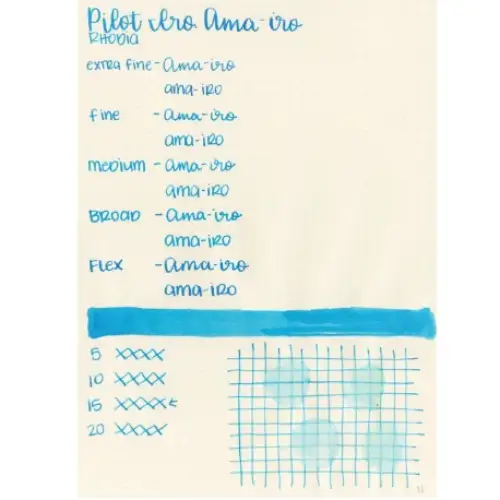 Pilot Iro Ama-iro
RHODIA
extra fine - Ama-iro
ama-iro
fine - Ama-iro
ama-iro
medium - Ama-iro
ama-iro
BROAD - Ama-iro
ama-iro
Flex - Ama-iro
ama-iro
5 XXXX
10 XXXX
15 XXXX←
20 XXXX